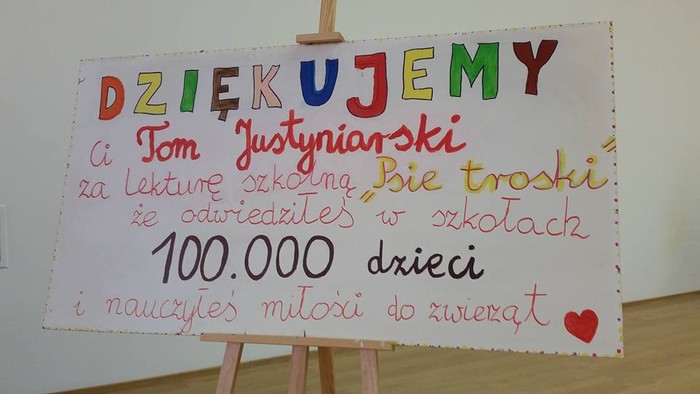 DZIĘKUJEMY
Ci Tom Justyniarski
za lekturę szkolną „Psie troski”
że odwiedziłeś w szkołach
100.000 dzieci
i nauczyłeś miłości do zwierząt